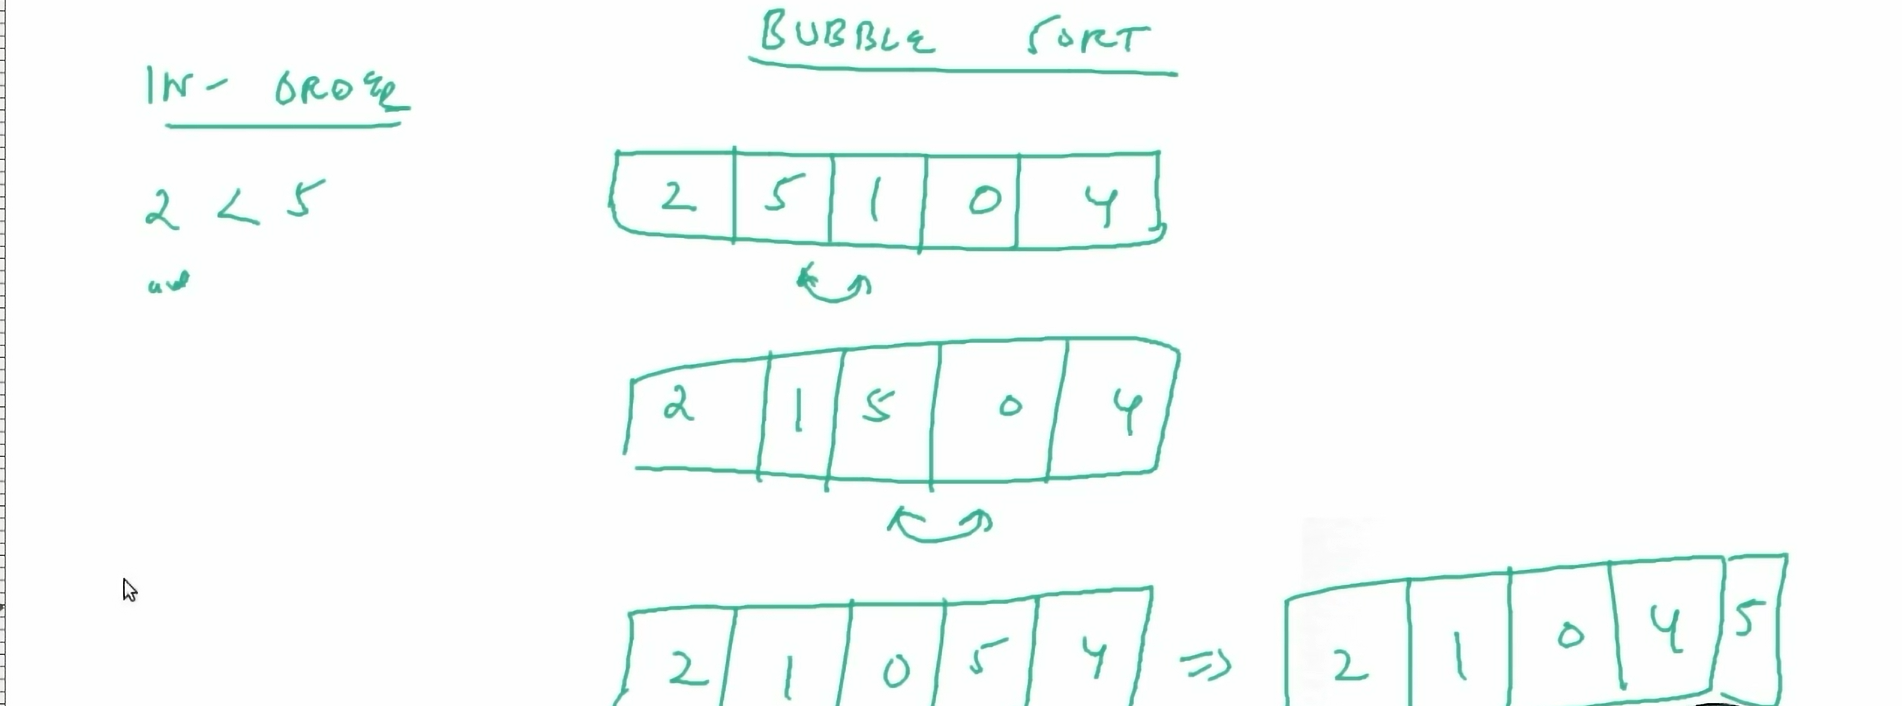 BUBBLE SORT
IN- ORDER
2 < 5
2 5 1 0 4
2 1 5 0 4
2 1 0 5 4 => 2 1 0 4 5